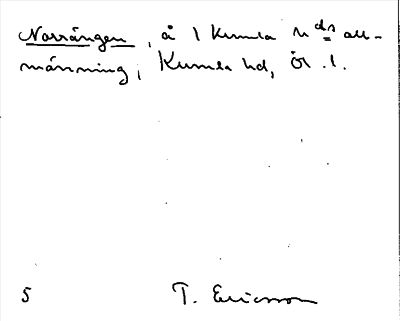 Norrängen, å 1 Kumla hds all-
männing, Kumla hd, Ör. l.
5 T. Ericsson